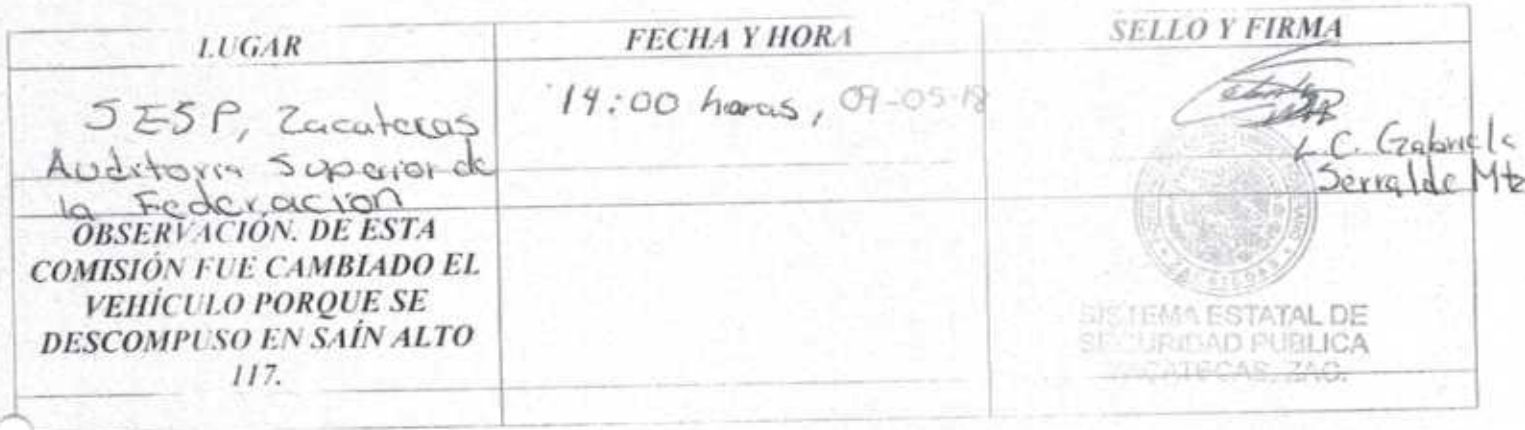 LUGAR
FECHA Y HORA
SELLO Y FIRMA
SESP, Zacatecas
Auditoria Superior de
la Federación
14:00 horas, 09-05-18
L.C. Gabriela
Serralde Mtz
OBSERVACIÓN. DE ESTA
COMISIÓN FUE CAMBIADO EL
VEHÍCULO PORQUE SE
DESCOMPUSO EN SAÍN ALTO
117.
SISTEMA ESTATAL DE
SEGURIDAD PUBLICA
ZACATECAS, ZAC.